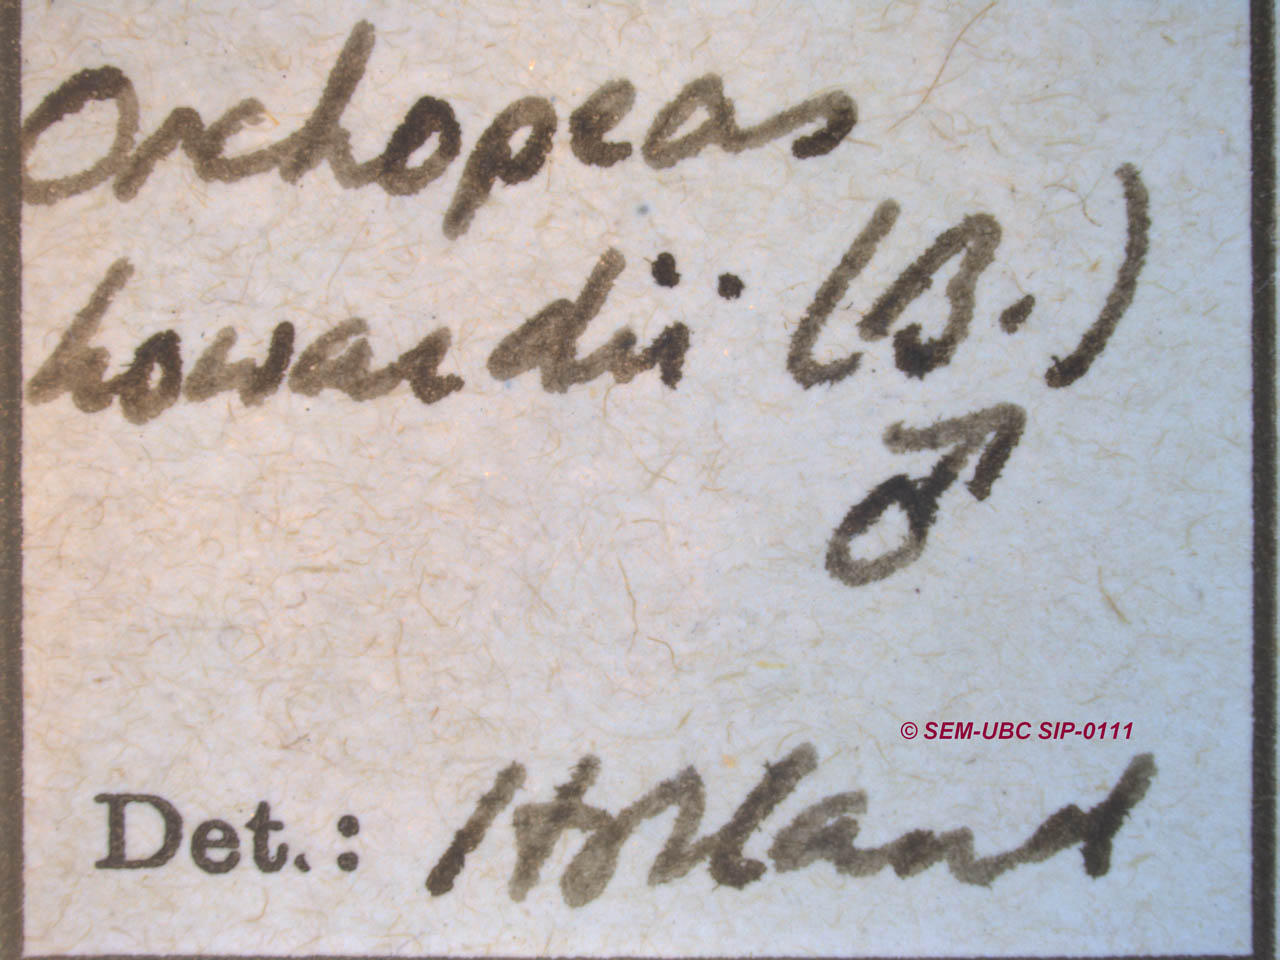 Orchopeas
howardii (B.)
♂
© SEM-UBC SIP-0111
Det.: Holland